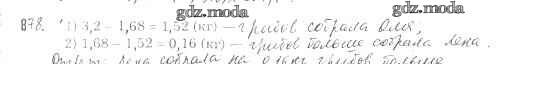 gdz.moda gdz.moda
878. 1) 3,2 – 1,68 = 1,52 (кг) – грибов собрала Оля,
2) 1,68 – 1,52 = 0,16 (кг) – грибов больше собрала Лена.
Ответ: Лена собрала на 0,16кг грибов больше